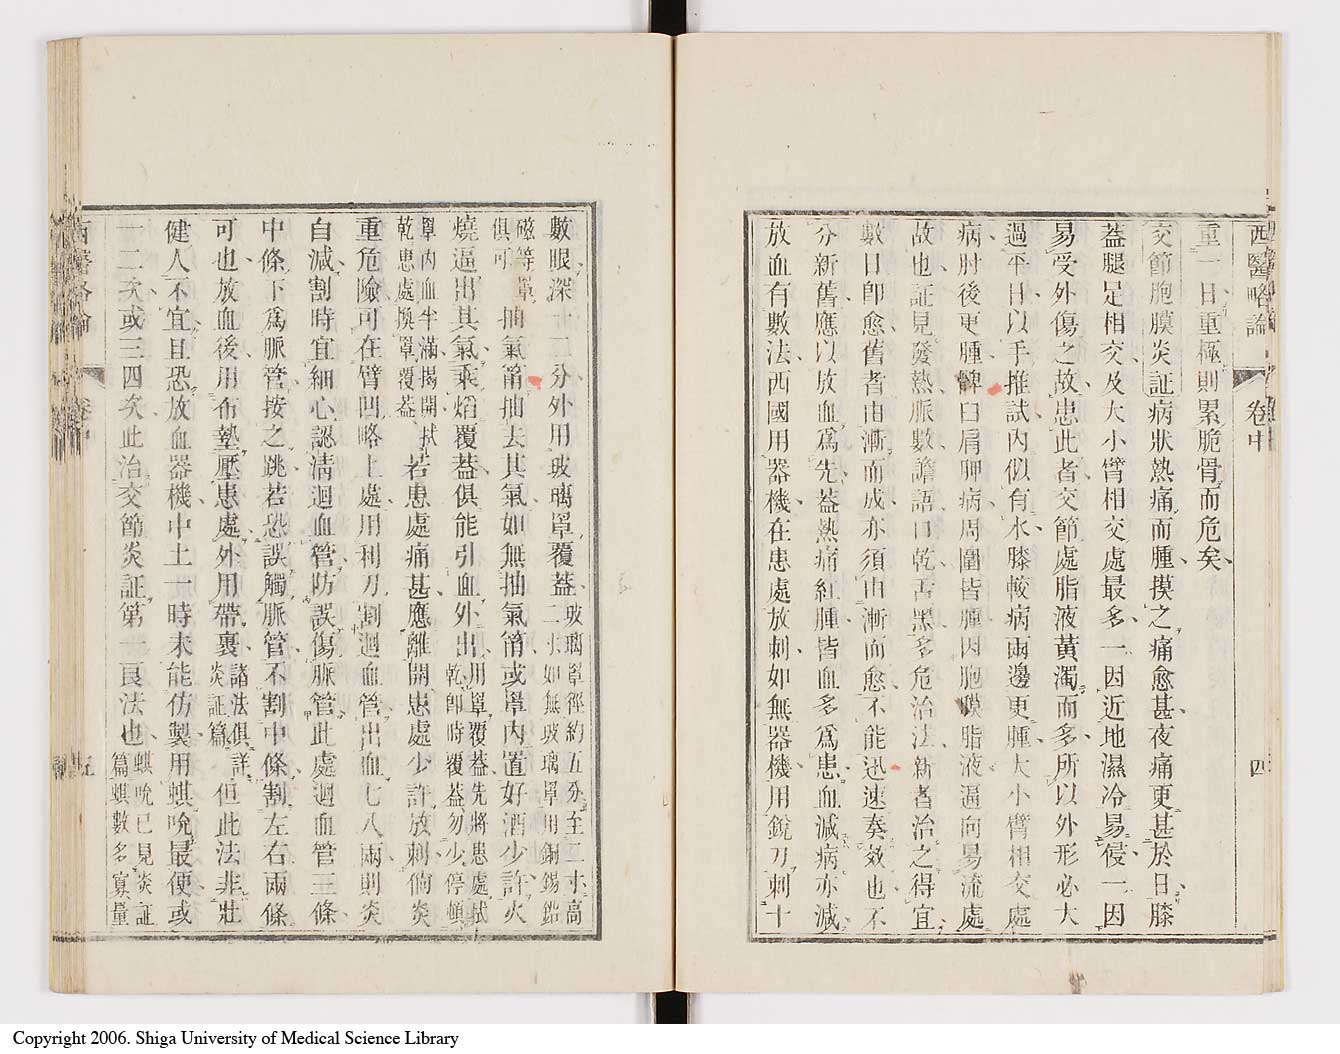 西醫略論 卷中 四
重一日重極則累脆骨而危矣
交節胞膜炎証病狀熱痛而腫摸之痛愈甚夜痛更甚於日膝
蓋腿足相交及大小臂相交處最多一因近地濕冷易侵一因
易受外傷之故患此者交節處脂液黃濁而多所以外形必大
過平日以手推試內似有水膝較病兩邊更腫大小臂相交處
病肘後更腫髀臼肩胛病周圍皆腫因胞膜脂液逼向易流處
故也証見發熱脈數譫語口乾舌黑多危治法新者治之得宜
數日即愈舊者由漸而成亦須由漸而愈不能迅速奏效也不
分新舊應以放血為先蓋熱痛紅腫皆血多為患血減病亦減
放血有數法西國用器機在患處放刺如無器機用銳刀刺十
數眼深十二分外用玻璃罩覆蓋玻璃罩徑約五分至二寸高
二寸如無玻璃罩用銅錫鉛
磁等罩
俱可抽氣筩抽去其氣如無抽氣筩或罩內置好酒少許火
燒逼出其氣乘焰覆蓋俱能引血外出用罩覆蓋先將患處拭
乾即時覆蓋勿少停頓
罩內血半滿揭開拭
乾患處換罩覆蓋若患處痛甚應離開患處少許放刺倘炎
重危險可在臂凹略上處用利刀割迴血管出血七八兩則炎
自減割時宜細心認清迴血管防誤傷脈管此處迴血管三條
中條下為脈管按之跳若恐誤觸脈管不割中條割左右兩條
可也放血後用布墊壓患處外用帶裹諸法俱詳
炎証篇但此法非壯
健人不宜且恐放血器機中土一時未能仿製用蜞吮最便或
一二次或三四次此治交節炎証第一良法也蜞吮已見炎証
篇蜞數多寡量
西醫略論 卷中 五
Copyright 2006. Shiga University of Medical Science Library